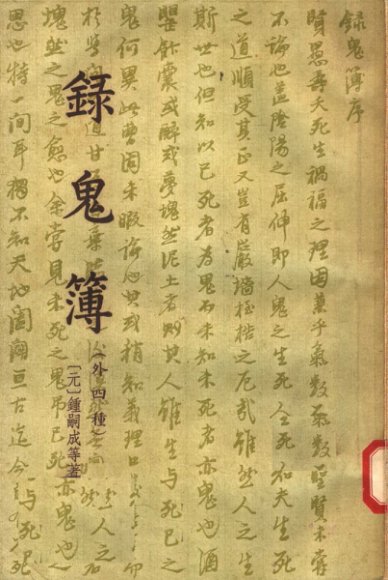 録鬼簿
（外四種）
〔元〕鍾嗣成等著
録鬼簿序
賢愚壽夭死生禍福之理固兼乎氣數氣數聖賢未嘗
不論也蓋陰陽之屈伸即人鬼之生死人死知夫生死
之道順受其正又豈有巖墻桎梏之厄哉雖然人之生
斯世也但知以已死者為鬼而未知未死者亦鬼也酒
罌飰囊或醉或夢塊然泥土者則其人雖生與死已之
鬼何異此曹固未暇論也其或稍知義理口
於學問道甘棄
塊然之鬼之愈也余嘗見未死之鬼吊已死亦鬼也
思也特一間耳獨不知天地闔闢亘古迄今與死